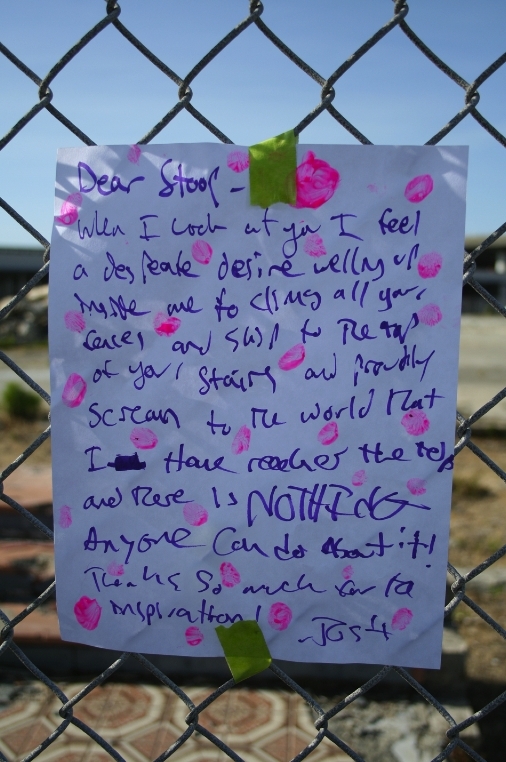 Dear Stoop -
When I look at you I feel
a desperate desire welling up
inside me to climb all your
fences and skip to the top
of your stairs and proudly
scream to the world that
I Have reached the top
and there is NOTHING
Anyone can do about it!
Thanks so much for the
inspiration!
- JOSH